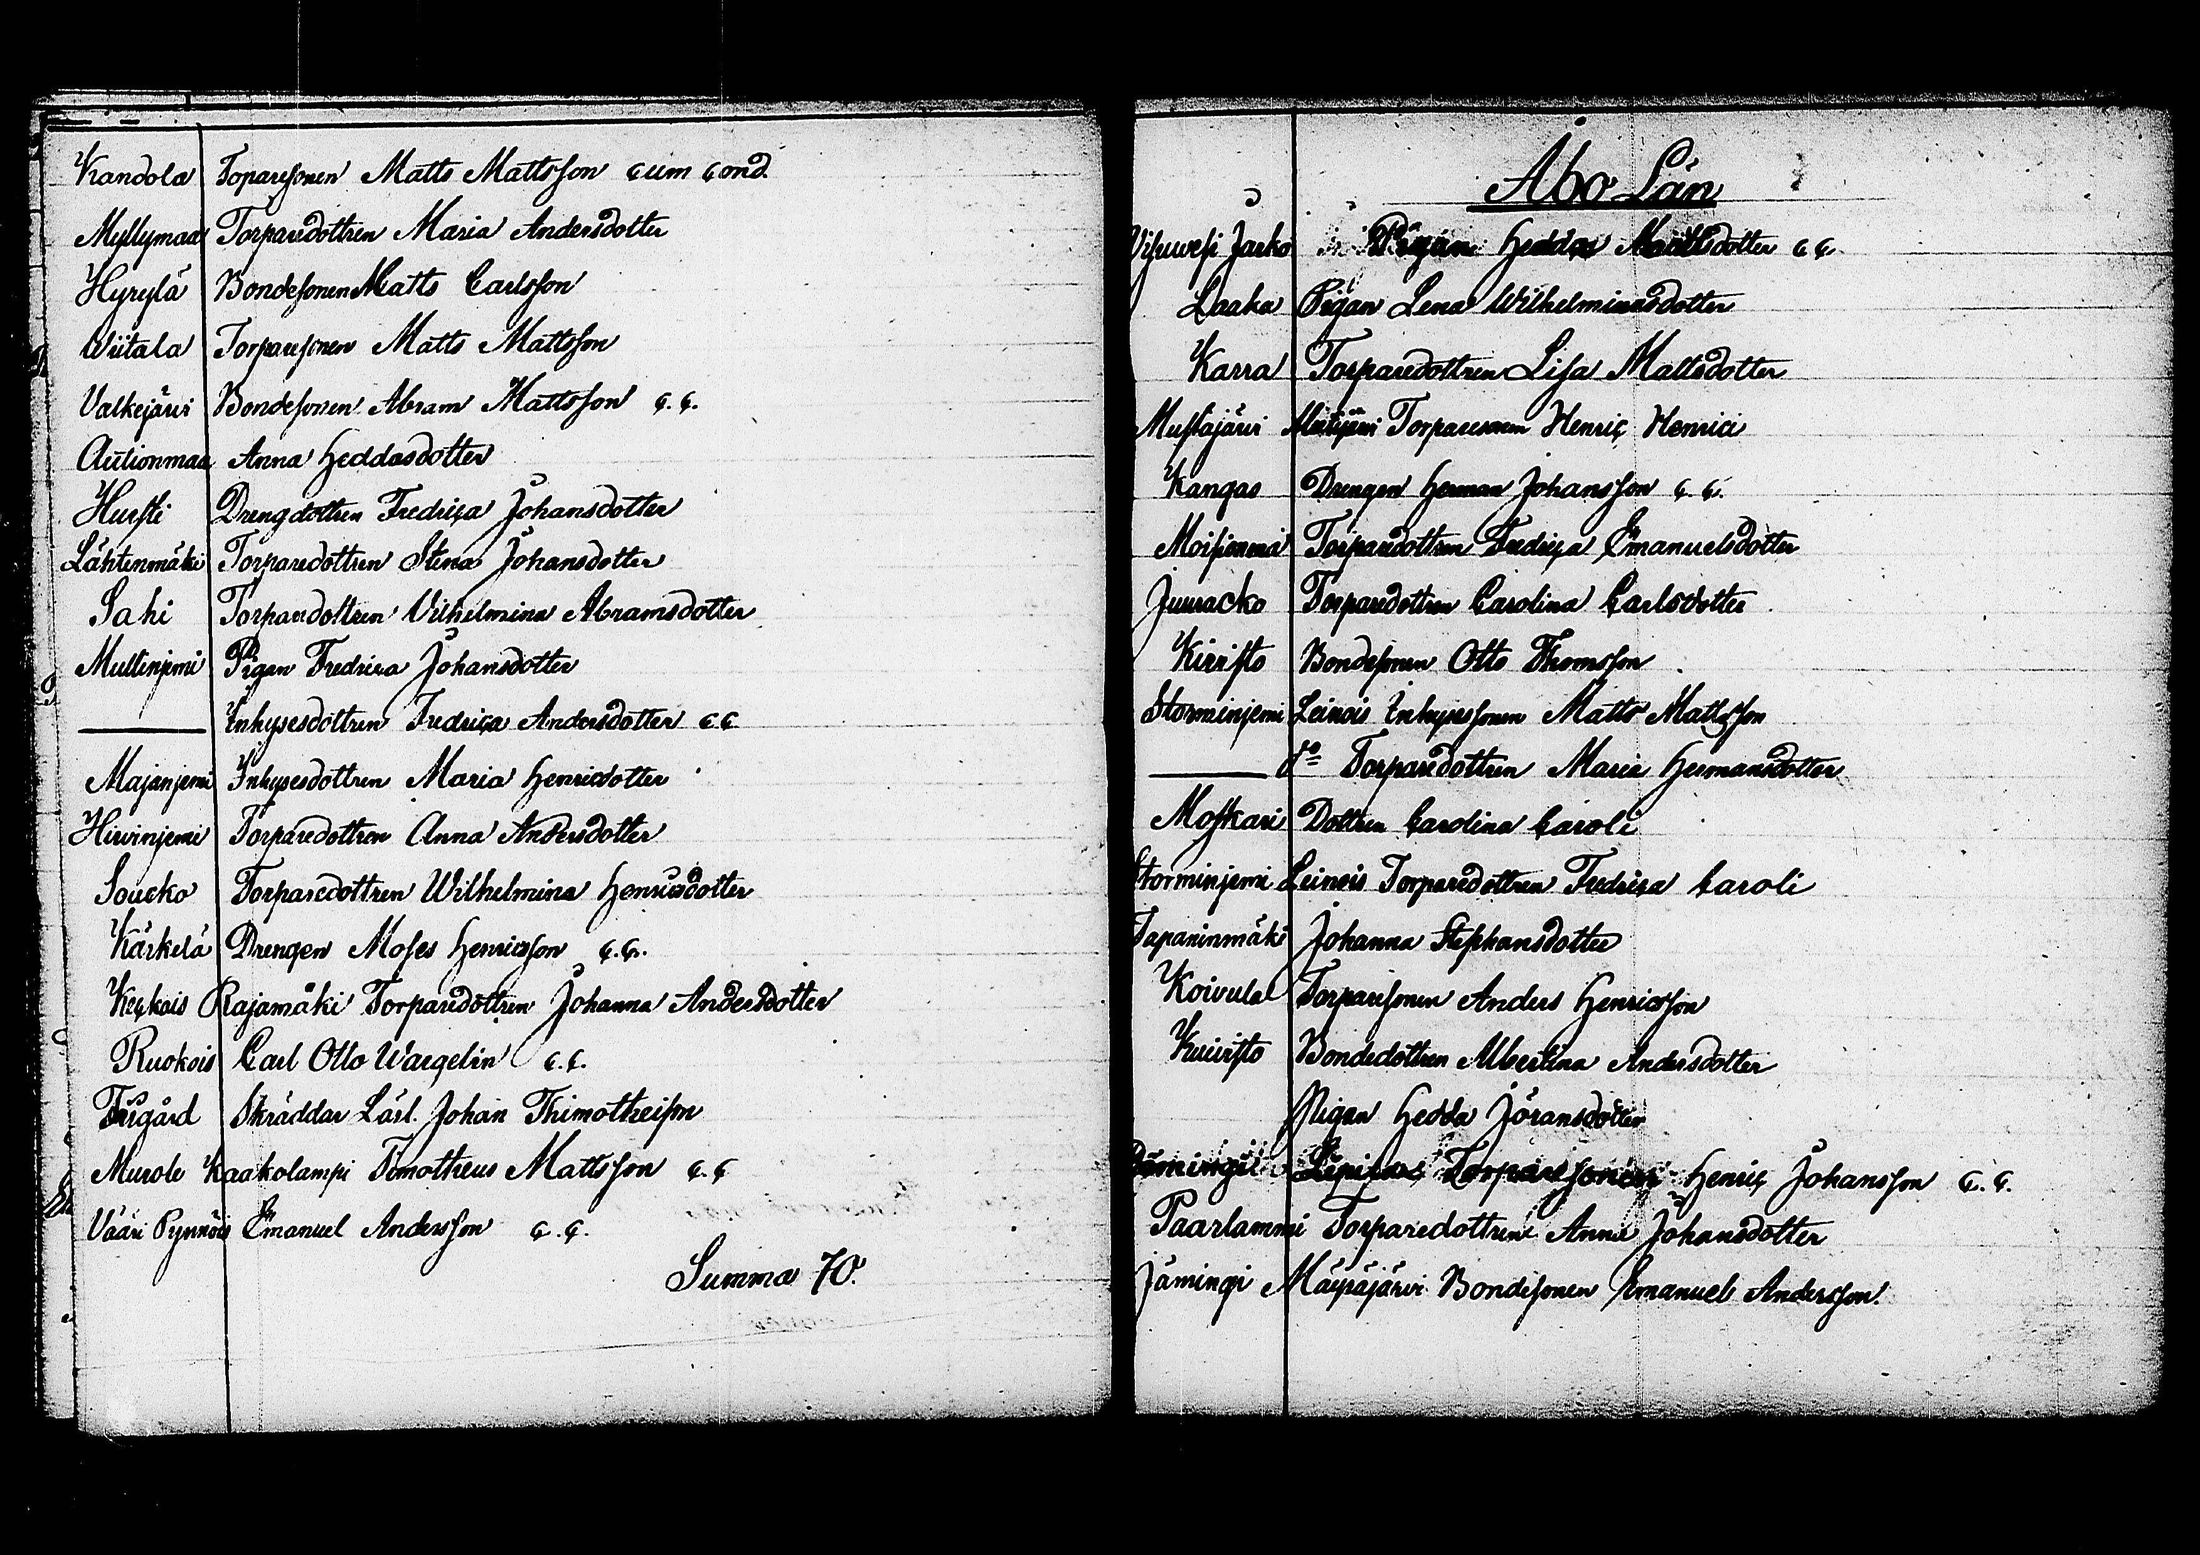 Kandola Toparesonen Matts Mattsson cum cond.
Myllymaa Torparedottren Maria Andersdotter
Hyrylä Bondesonen Matts Carlsson
Wiitala Torparesonen Matts Mattsson
Valkejärvi Bondesonen Abram Mattsson c.c.
Autionmaa Anna Heddasdotter
Hursti Drengdottren Fredrica Johansdotter
Lähtenmäki Torparedottren Stena Johansdotter
Sahi Torparedottren Vilhelmina Abramsdotter
Multinjemi Pigan Fredrica Johansdotter
Inhysesdottren Fredrica Andersdotter c c
Majanjemi Inhysesdottren Maria Henricsdotter
Hirvinjemi Torparedottren Anna Andersdotter
Soucko Torparedottren Wilhelmina Henricsdotter
Kärkelä Drengen Moses Henricsson c.c.
Keckois Rajamäki Torparedottren Johanna Andersdotter
Ruokois Carl Otto Wargelin c.c.
Frigård Skräddar Lärl. Johan Thimotheison
Murole Kaakolampi Timotheus Mattsson c.c
Vääri Pynnöis Emanuel Andersson c.c.
Summa 70.
Åbo Län
Visuvesi Jarko Pigan Hedda Mattsdotter c c.
Laaka Pigan Lena Wilhelminasdotter
Karra Torparedottren Lisa Mattsdotter
Mustajärvi Torparesonen Henric Henrici
Kangas Drengen Herman Johansson c.c.
Moisionma Torparedottren Fredrica Emanuelsdotter
Juuracko Torparedottren Carolina Carlsdotter
Kirristo Bondesonen Otto Thomsson
Storminjemi Leinois Inhysessonen Matts Mattsson
do Torparedottren Maria Hermansdotter
Moskari Dottren Carolina Caroli
Storminjemi Leinois Torparedottren Fredrica Caroli
Tapaninmäki Johanna Stephansdotter
Koivula Torparesonen Anders Henricsson
Kuiristo Bondedottren Albertina Andersdotter
Pigan Hedda Jöransdotter
Jämingi Torparesonen Henric Johansson c.c.
Paarlammi Torparedottren Anna Johansdotter
Jämingi Mäyräjärvi Bondesonen Emanuel Andersson.